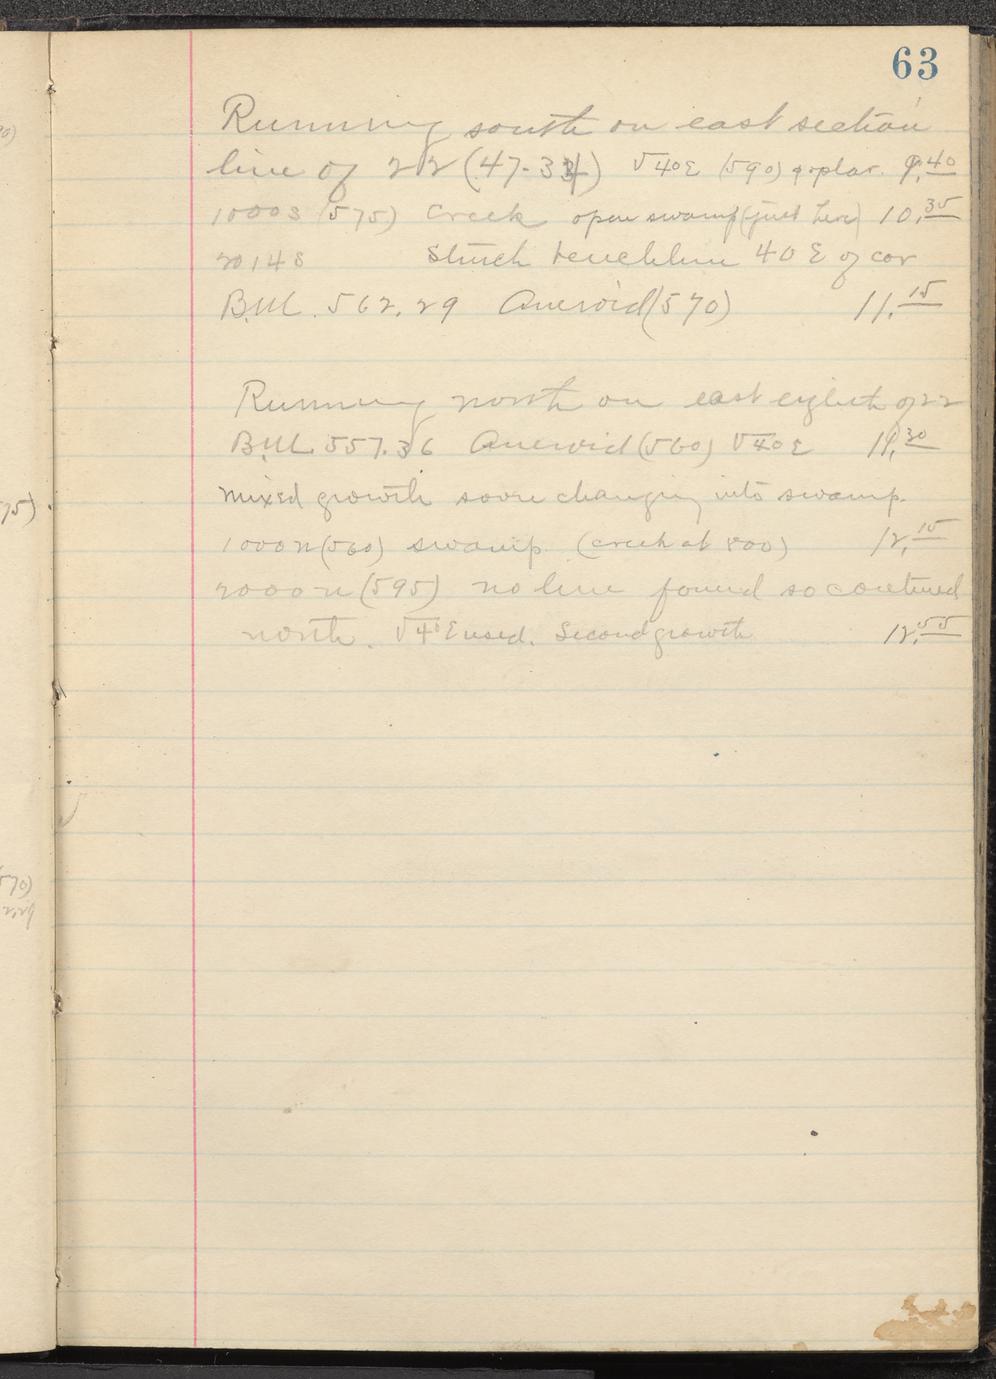 63
Running south on east section
line of 22 (47-34) V40E (590) poplar. 9.40
1000S (575) Creek open swamp (just here) 10.35
2014S Struck benchline 40 E of cor
B.M. 562.29 Aneroid (570) 11.15
Running north on east eighth of 22
B.M. 557.36 Aneroid (560) V40E 11.30
mixed growth soon changing into swamp.
1000N (560) swamp. (creek at 800) 12.15
2000N (595) no line found so continued
north. V40E used. Second growth 12.55
75)
570)